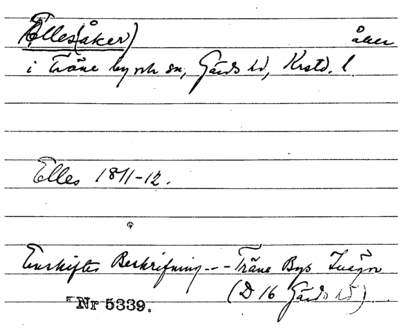 Elles(åker) åker
i Träne by och sn, Gärds hd, Krstd. l.
Elles 1811-12.
Enskiftes Beskrifning -- Träne Bys Inägor
(D 16 Gärds hd)
Nr 5339.